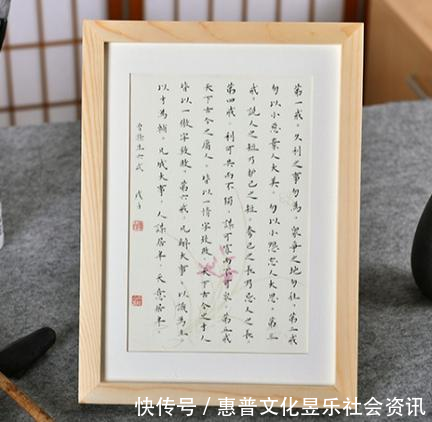 第一戒,久利之事勿為,眾爭之地勿往,第二戒
勿以小惡棄人大美,勿以小怨忘人大恩,第三
戒,說人之短乃護己之短,夸己之長乃忌人之長,
第四戒,利可共而不獨,謀可寡而不可眾,第五戒
天下古今之庸人,皆以一惰字致敗,天下古今之才人
皆以一傲字致敗,第六戒,凡辦大事,以識為主
以才為輔,凡成大事,人謀居半,天意居半。
六戒
快传号/惠普文化昱乐社会资讯